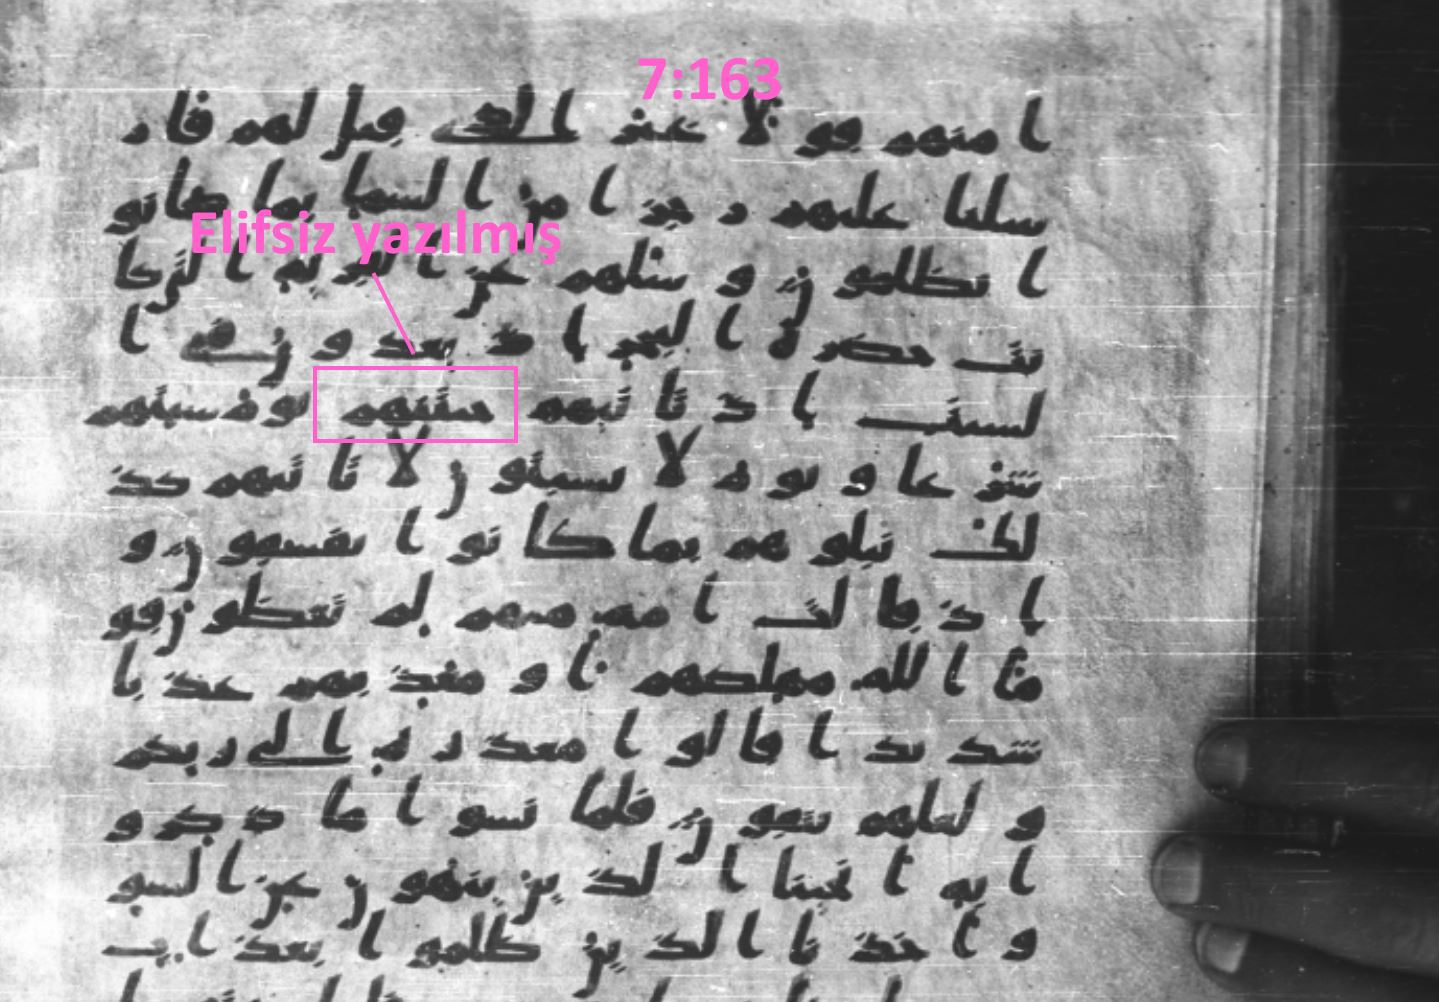 7:163
ا منهم قولا غير ا لذي قيل لهم فا ر
سلنا عليهم ر جز ا من ا لسما بما كا نو
Elifsiz yazılmış
ا يظلمو ن و سلهم عن ا لقر يه ا لتي كا
نت حضر ه ا لبحر ا ذ يعد و ن في ا
لسبت ا ذ تا تيهم حيتنهم يو م سبتهم
شر عا و يو م لا يسبتو ن لا تا تيهم كذ
لك نبلو هم بما كا نو ا يفسقو ن و
ا ذ قا لت ا مه منهم لم تعظو ن قو
ما ا لله مهلكهم ا و معذ بهم عذ با
شد يد ا قا لو ا معذ ر ه ا لى ر بكم
و لعلهم يتقو ن فلما نسو ا ما ذ كر و
ا به ا نجينا ا لذ ين ينهو ن عن ا لسو
و ا خذ نا ا لذ ين ظلمو ا بعذ ا ب